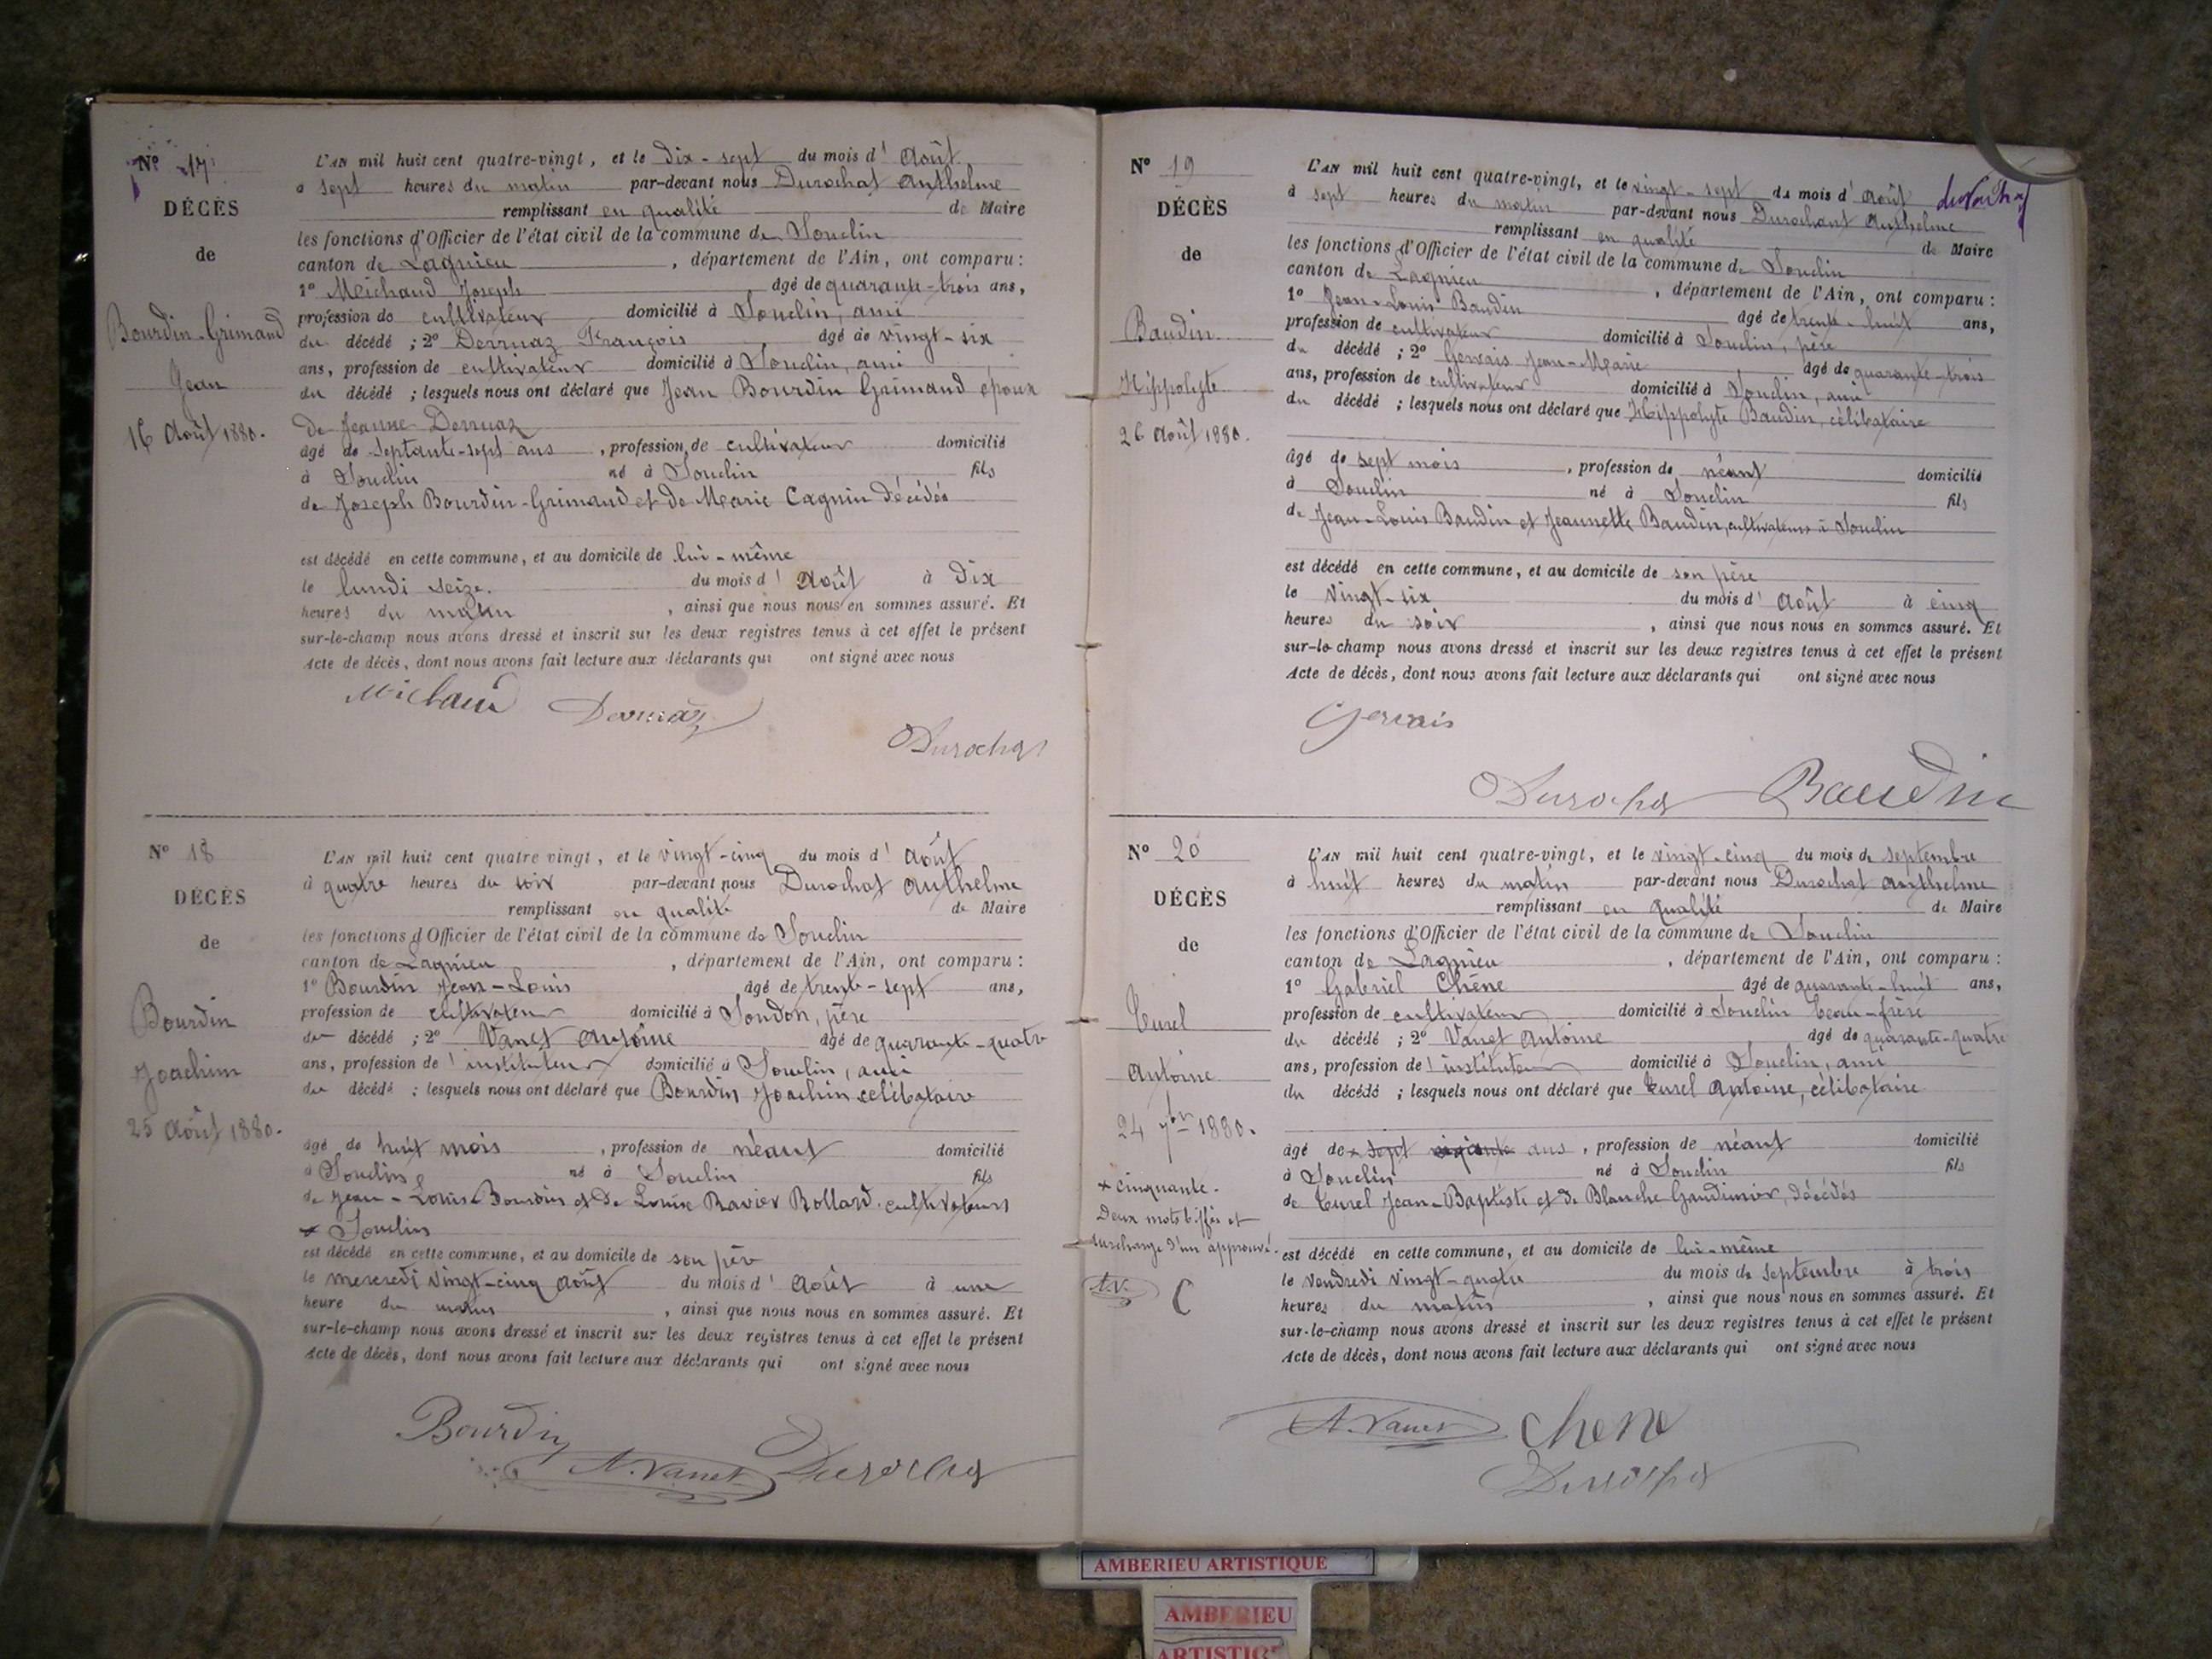 N° 17
DÉCÈS
de
Bourdin-Grimaud
Jean
16 Août 1880.
L'AN mil huit cent quatre-vingt, et le dix-sept du mois d' Août
à sept heures du matin par-devant nous Durochat Anthelme
remplissant en qualité de Maire
les fonctions d'Officier de l'état civil de la commune de Souclin
canton de Lagnieu , département de l'Ain, ont comparu :
1° Michaud Joseph âgé de quarante-trois ans,
profession de cultivateur domicilié à Souclin, ami
du décédé ; 2° Derruaz François âgé de vingt-six
ans, profession de cultivateur domicilié à Souclin, ami
du décédé ; lesquels nous ont déclaré que Jean Bourdin Grimaud époux
de Jeanne Derruaz
âgé de septante-sept ans , profession de cultivateur domicilié
à Souclin né à Souclin fils
de Joseph Bourdin-Grimaud et de Marie Cagnin décédés
est décédé en cette commune, et au domicile de lui-même
le lundi seize du mois d' Août à dix
heures du matin , ainsi que nous nous en sommes assuré. Et
sur-le-champ nous avons dressé et inscrit sur les deux registres tenus à cet effet le présent
Acte de décès, dont nous avons fait lecture aux déclarants qui ont signé avec nous
Michaud Derruaz
Durochat
N° 18
DÉCÈS
de
Bourdin
Joachim
25 Août 1880.
L'AN mil huit cent quatre vingt, et le vingt-cinq du mois d' Août
à quatre heures du soir par-devant nous Durochat Anthelme
remplissant en qualité de Maire
les fonctions d'Officier de l'état civil de la commune de Souclin
canton de Lagnieu , département de l'Ain, ont comparu :
1° Bourdin Jean-Louis âgé de trente-sept ans,
profession de cultivateur domicilié à Soudon, père
du décédé ; 2° Vanet Antoine âgé de quarante-quatre
ans, profession d' instituteur domicilié à Souclin, ami
du décédé ; lesquels nous ont déclaré que Bourdin Joachim célibataire
âgé de huit mois , profession de néant domicilié
à Souclin né à Souclin fils
de Jean-Louis Bourdin et de Louise Ravier Rollard cultivateurs
à Souclin
est décédé en cette commune, et au domicile de son père
le mercredi vingt-cinq Août du mois d' Août à une
heure du matin , ainsi que nous nous en sommes assuré. Et
sur-le-champ nous avons dressé et inscrit sur les deux registres tenus à cet effet le présent
Acte de décès, dont nous avons fait lecture aux déclarants qui ont signé avec nous
Bourdin
A. Vanet Durochat
N° 19
DÉCÈS
de
Baudin
Hippolyte
26 Août 1880.
L'AN mil huit cent quatre-vingt, et le vingt-sept du mois d' Août
à sept heures du matin par-devant nous Durochant Anthelme
remplissant en qualité de Maire
les fonctions d'Officier de l'état civil de la commune de Souclin
canton de Lagnieu , département de l'Ain, ont comparu :
1° Jean-Louis Baudin âgé de trente-huit ans,
profession de cultivateur domicilié à Souclin, père
du décédé ; 2° Gervais Jean-Marie âgé de quarante-trois
ans, profession de cultivateur domicilié à Souclin, ami
du décédé ; lesquels nous ont déclaré que Hippolyte Baudin, célibataire
âgé de sept mois , profession de néant domicilié
à Souclin né à Souclin fils
de Jean-Louis Baudin et Jeannette Baudin, cultivateurs à Souclin
est décédé en cette commune, et au domicile de son père
le vingt-six du mois d' Août à cinq
heures du soir , ainsi que nous nous en sommes assuré. Et
sur-le-champ nous avons dressé et inscrit sur les deux registres tenus à cet effet le présent
Acte de décès, dont nous avons fait lecture aux déclarants qui ont signé avec nous
Gervais
Durochat Baudin
N° 20
DÉCÈS
de
Curel
Antoine
24 7bre 1880.
+ cinquante.
Deux mots biffés et
surcharge d'un approuvé.
A.V. C
L'AN mil huit cent quatre-vingt, et le vingt-cinq du mois de septembre
à huit heures du matin par-devant nous Durochat Anthelme
remplissant en qualité de Maire
les fonctions d'Officier de l'état civil de la commune de Souclin
canton de Lagnieu , département de l'Ain, ont comparu :
1° Gabriel Chêne âgé de quarante-huit ans,
profession de cultivateur domicilié à Souclin beau-frère
du décédé ; 2° Vanet Antoine âgé de quarante-quatre
ans, profession d' instituteur domicilié à Souclin, ami
du décédé ; lesquels nous ont déclaré que Curel Antoine, célibataire
âgé de + sept ans , profession de néant domicilié
à Souclin né à Souclin fils
de Curel Jean-Baptiste et de Blanche Gaudimier, décédés
est décédé en cette commune, et au domicile de lui-même
le Vendredi vingt-quatre du mois de Septembre à trois
heures du matin , ainsi que nous nous en sommes assuré. Et
sur-le-champ nous avons dressé et inscrit sur les deux registres tenus à cet effet le présent
Acte de décès, dont nous avons fait lecture aux déclarants qui ont signé avec nous
A. Vanet Chene
Durochat
AMBERIEU ARTISTIQUE
AMBERIEU
ARTISTIQUE